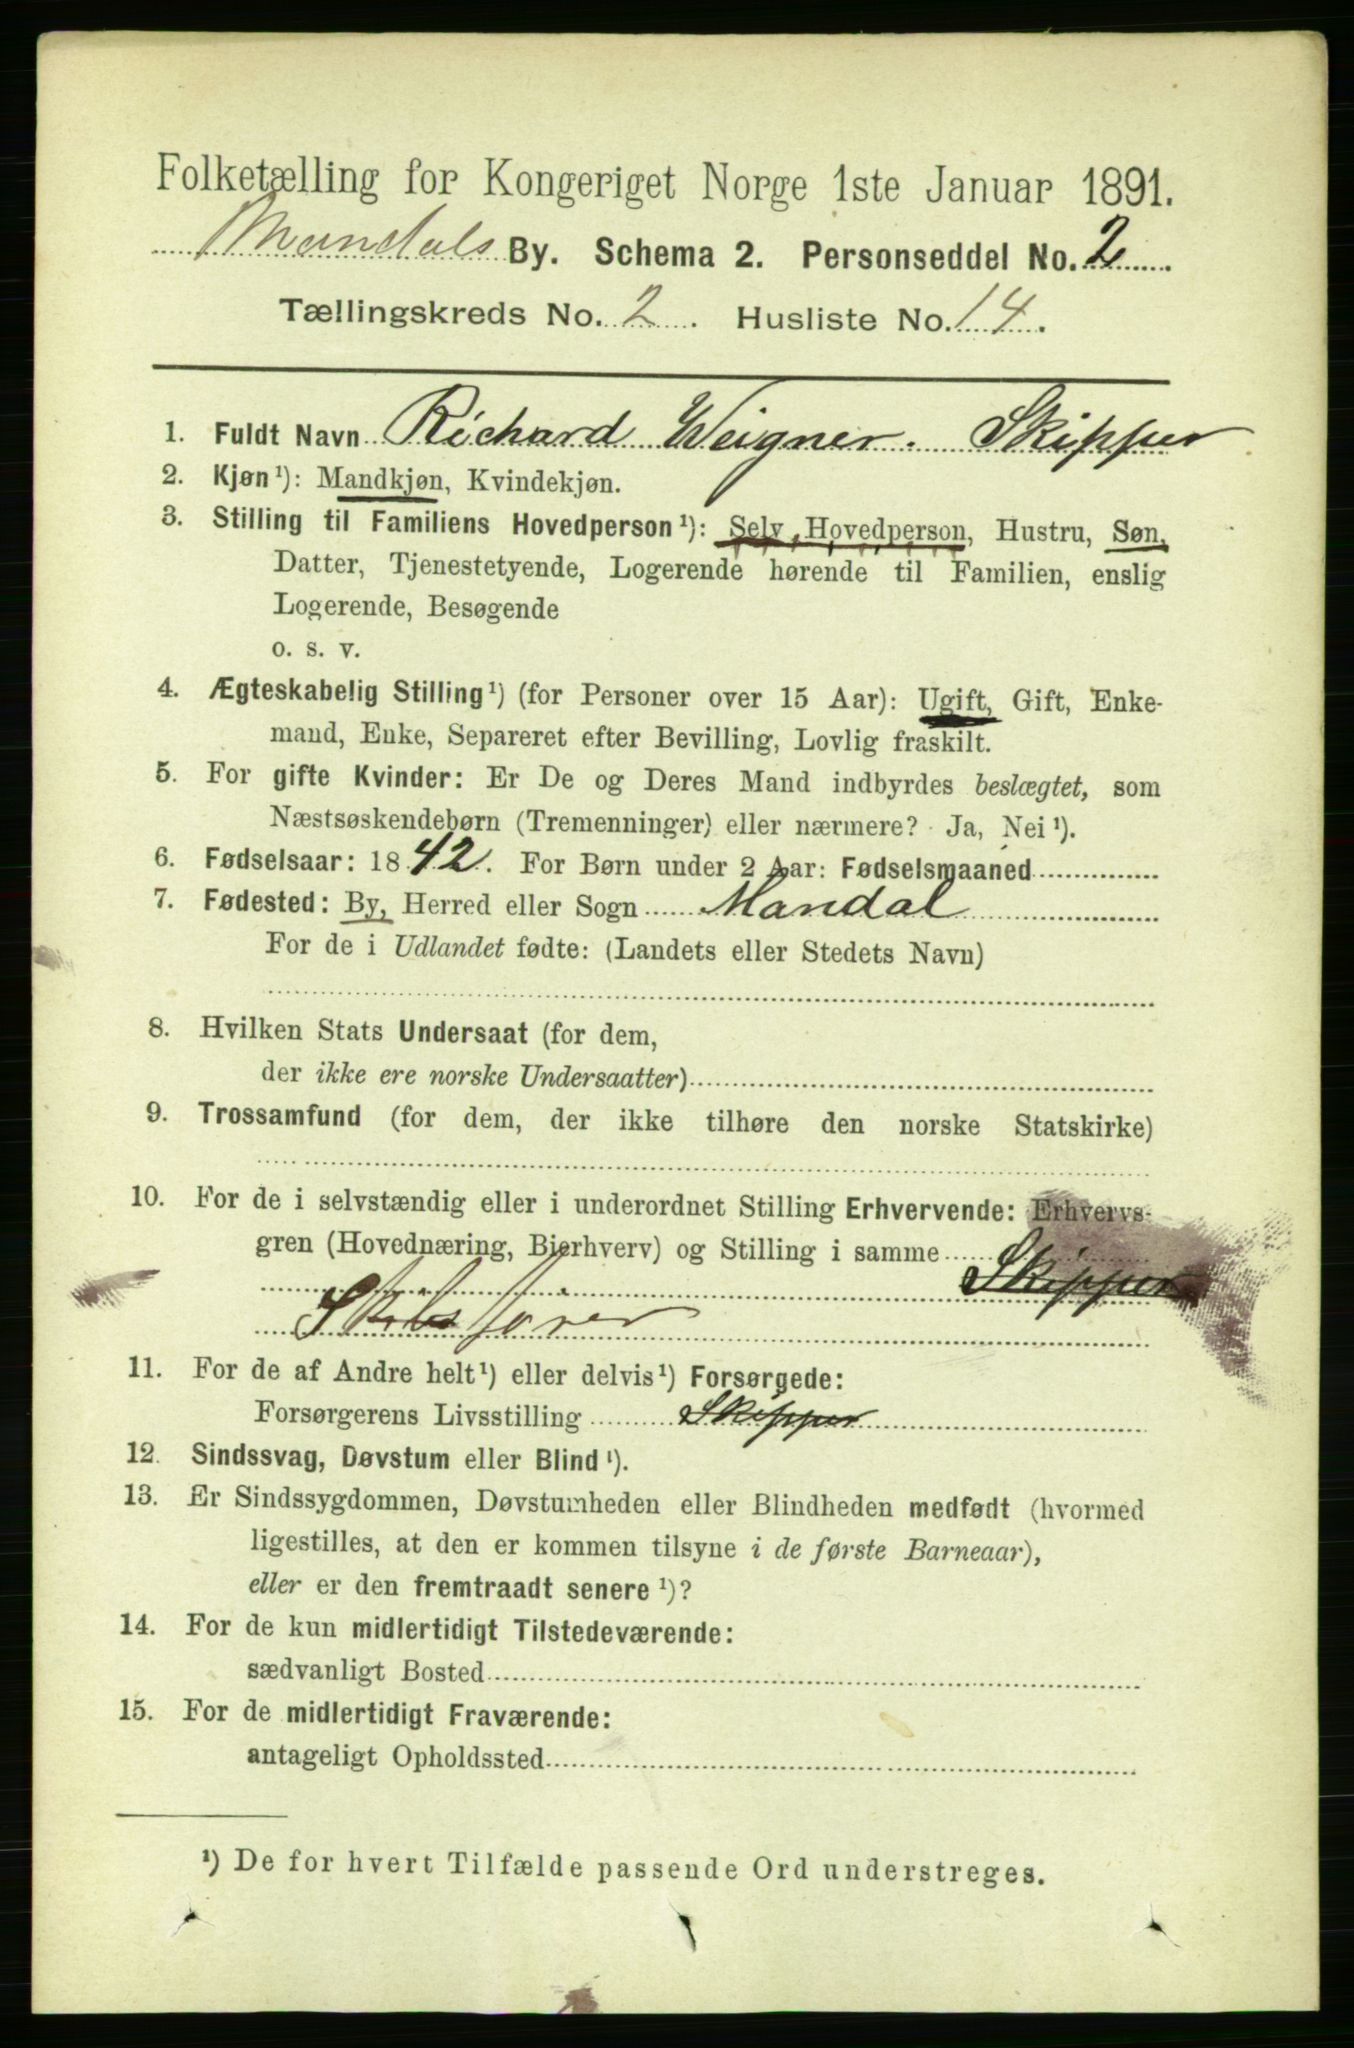 Folketælling for Kongeriget Norge 1ste Januar 1891.
Mandals By. Schema 2. Personseddel No. 2
Tællingskreds No. 2. Husliste No. 14.
1. Fuldt Navn Richard Weigner. Skipper
2. Kjøn¹): Mandkjøn, Kvindekjøn.
3. Stilling til Familiens Hovedperson¹): Selv Hovedperson, Hustru, Søn,
Datter, Tjenestetyende, Logerende hørende til Familien, enslig
Logerende, Besøgende
o. s. v.
4. Ægteskabelig Stilling¹) (for Personer over 15 Aar): Ugift, Gift, Enke-
mand, Enke, Separeret efter Bevilling, Lovlig fraskilt.
5. For gifte Kvinder: Er De og Deres Mand indbyrdes beslægtet, som
Næstsøskendebørn (Tremenninger) eller nærmere? Ja, Nei¹).
6. Fødselsaar: 1842. For Børn under 2 Aar: Fødselsmaaned
7. Fødested: By, Herred eller Sogn Mandal
For de i Udlandet fødte: (Landets eller Stedets Navn)
8. Hvilken Stats Undersaat (for dem,
der ikke ere norske Undersaatter)
9. Trossamfund (for dem, der ikke tilhøre den norske Statskirke)
10. For de i selvstændig eller i underordnet Stilling Erhvervende: Erhvervs-
gren (Hovednæring, Bierhverv) og Stilling i samme
Skipper
Skibsfører
11. For de af Andre helt¹) eller delvis¹) Forsørgede:
Forsørgerens Livsstilling Skipper
12. Sindssvag, Døvstum eller Blind¹).
13. Er Sindssygdommen, Døvstumheden eller Blindheden medfødt (hvormed
ligestilles, at den er kommen tilsyne i de første Barneaar),
eller er den fremtraadt senere¹)?
14. For de kun midlertidigt Tilstedeværende:
sædvanligt Bosted
15. For de midlertidigt Fraværende:
antageligt Opholdssted
¹) De for hvert Tilfælde passende Ord understreges.